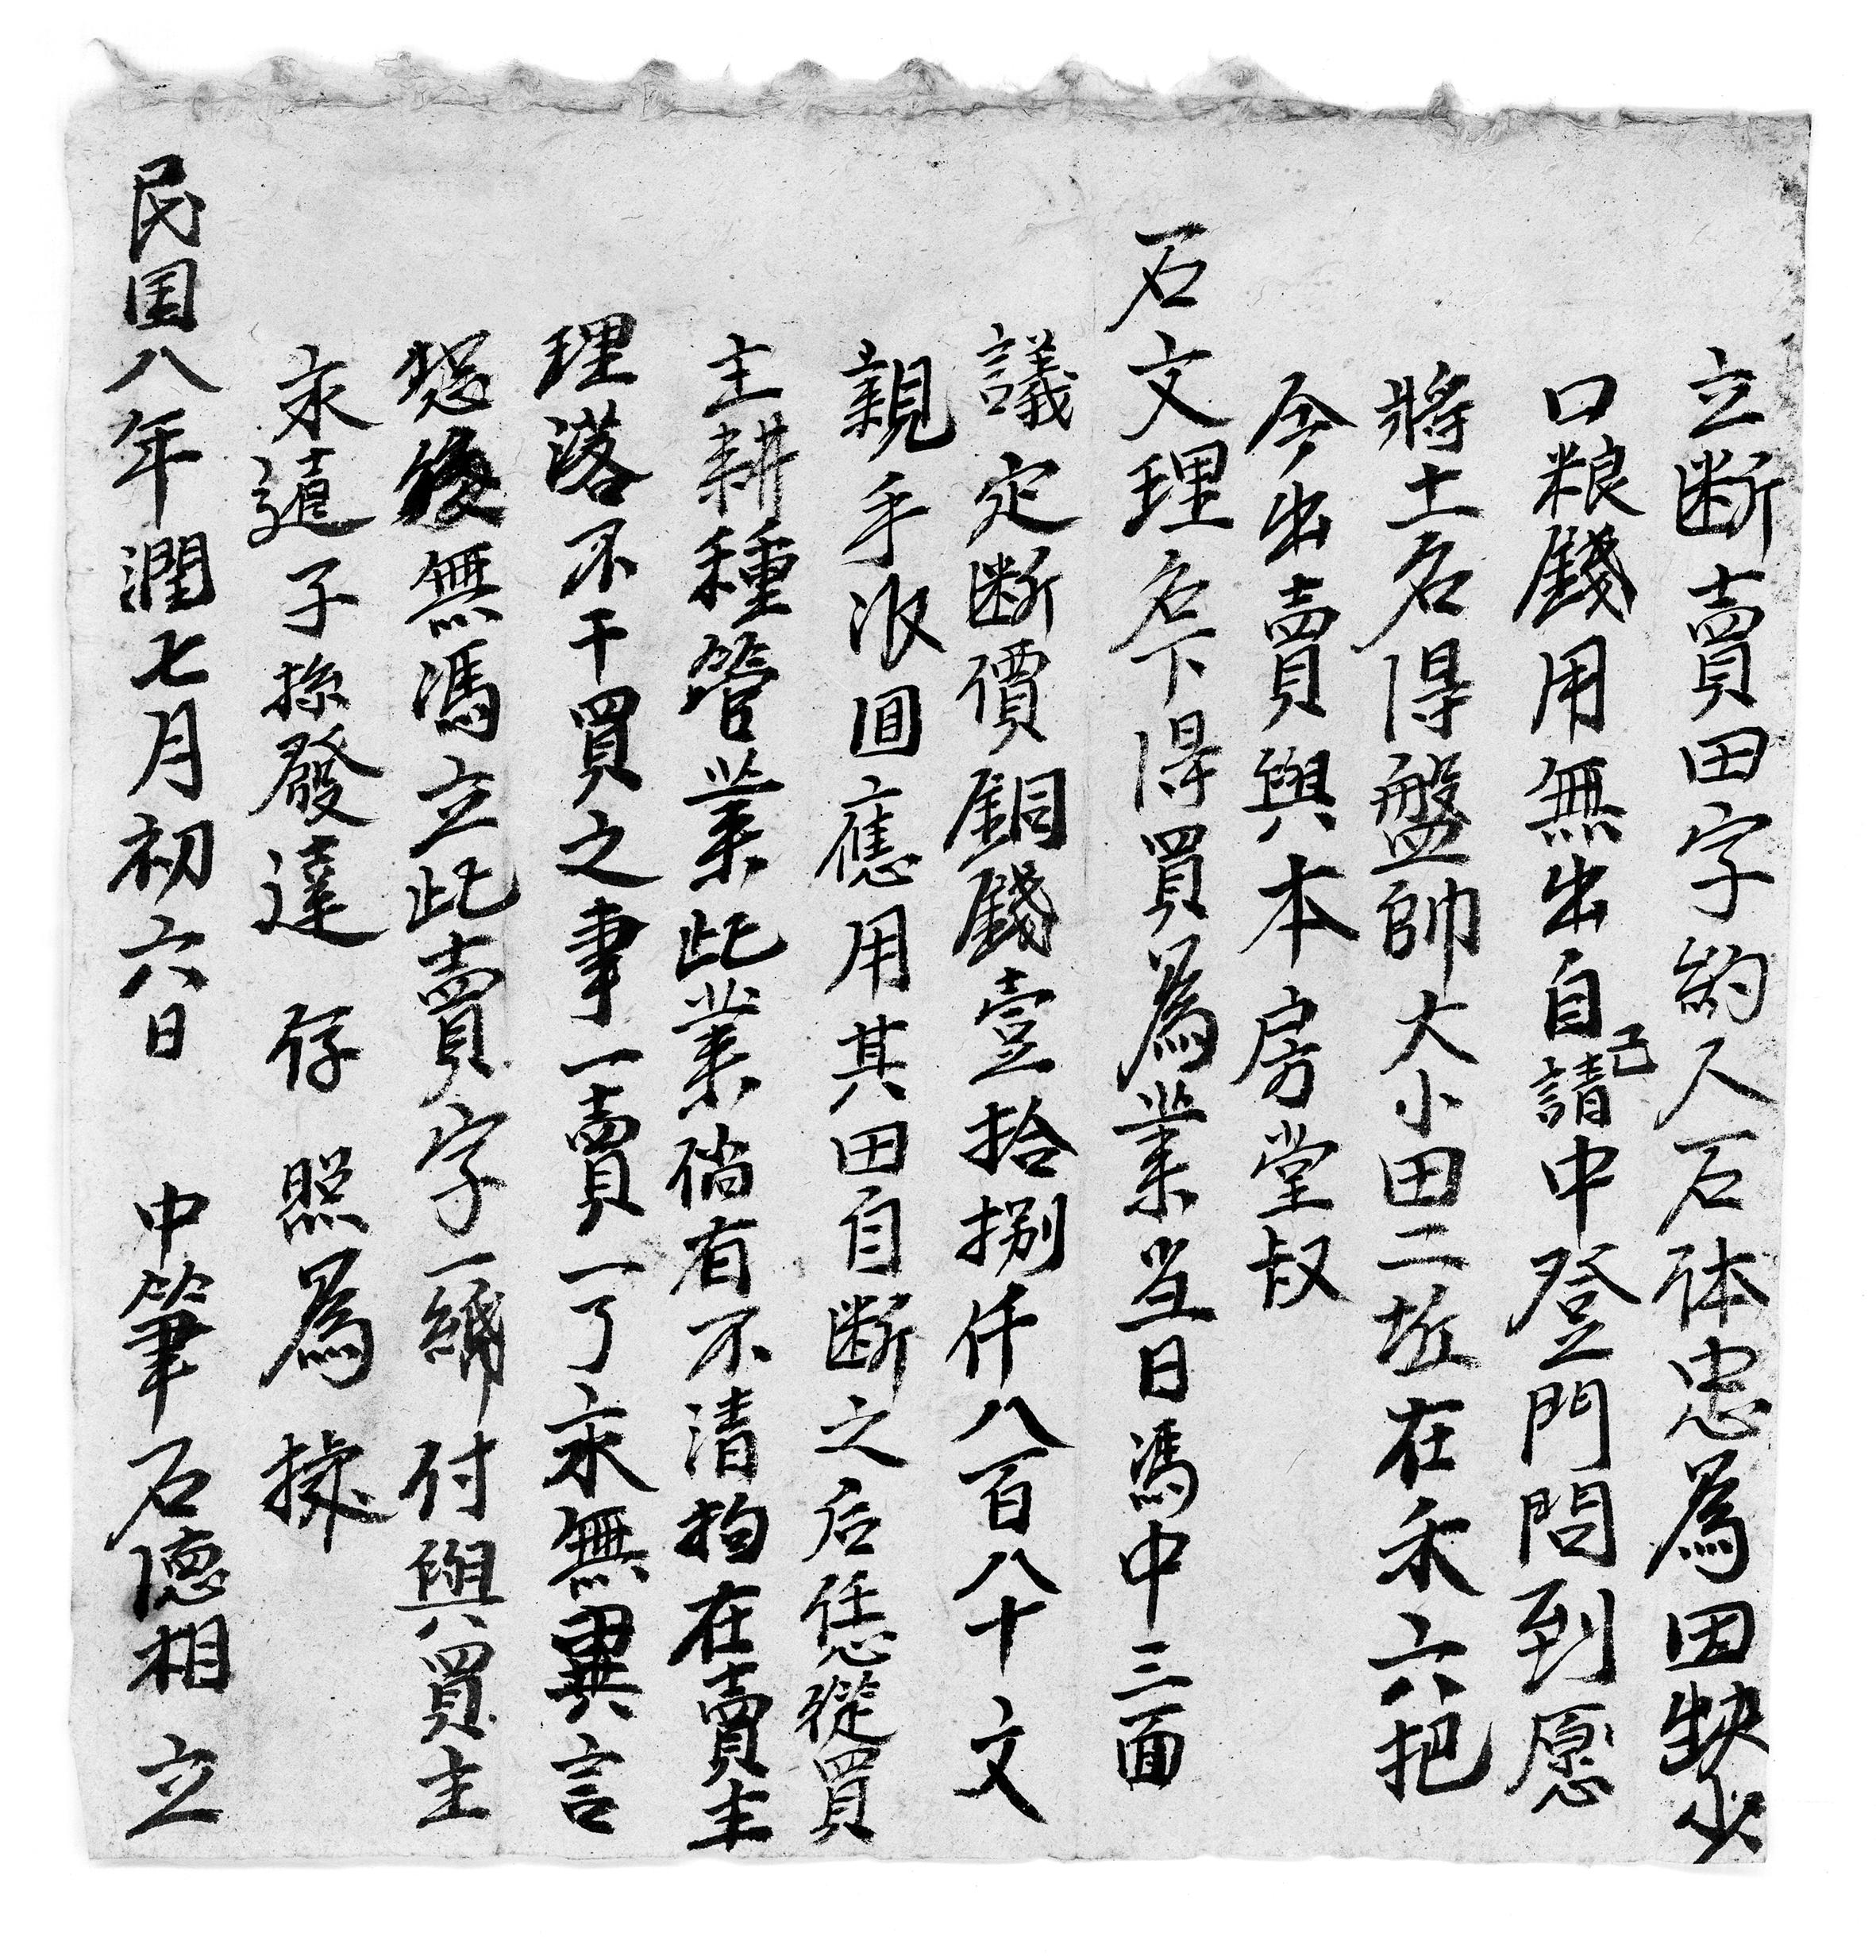 立断賣田字約人石体忠為因缺少
口粮錢用無出自己請中登門問到愿
將土名得盤帥大小田二坵在禾六把
今出賣與本房堂叔
石文理名下得買為業当日馮中三面
議定断價銅錢壹拾捌仟八百八十文
親手收回應用其田自断之后恁從買
主耕種管業此業倘有不清拘在賣主
理落不干買之事一賣一了永無異言
恐後無馮立此賣字一紙付與買主
永遠子孫發達 存照為據
民国八年潤七月初六日 中筆石德相立